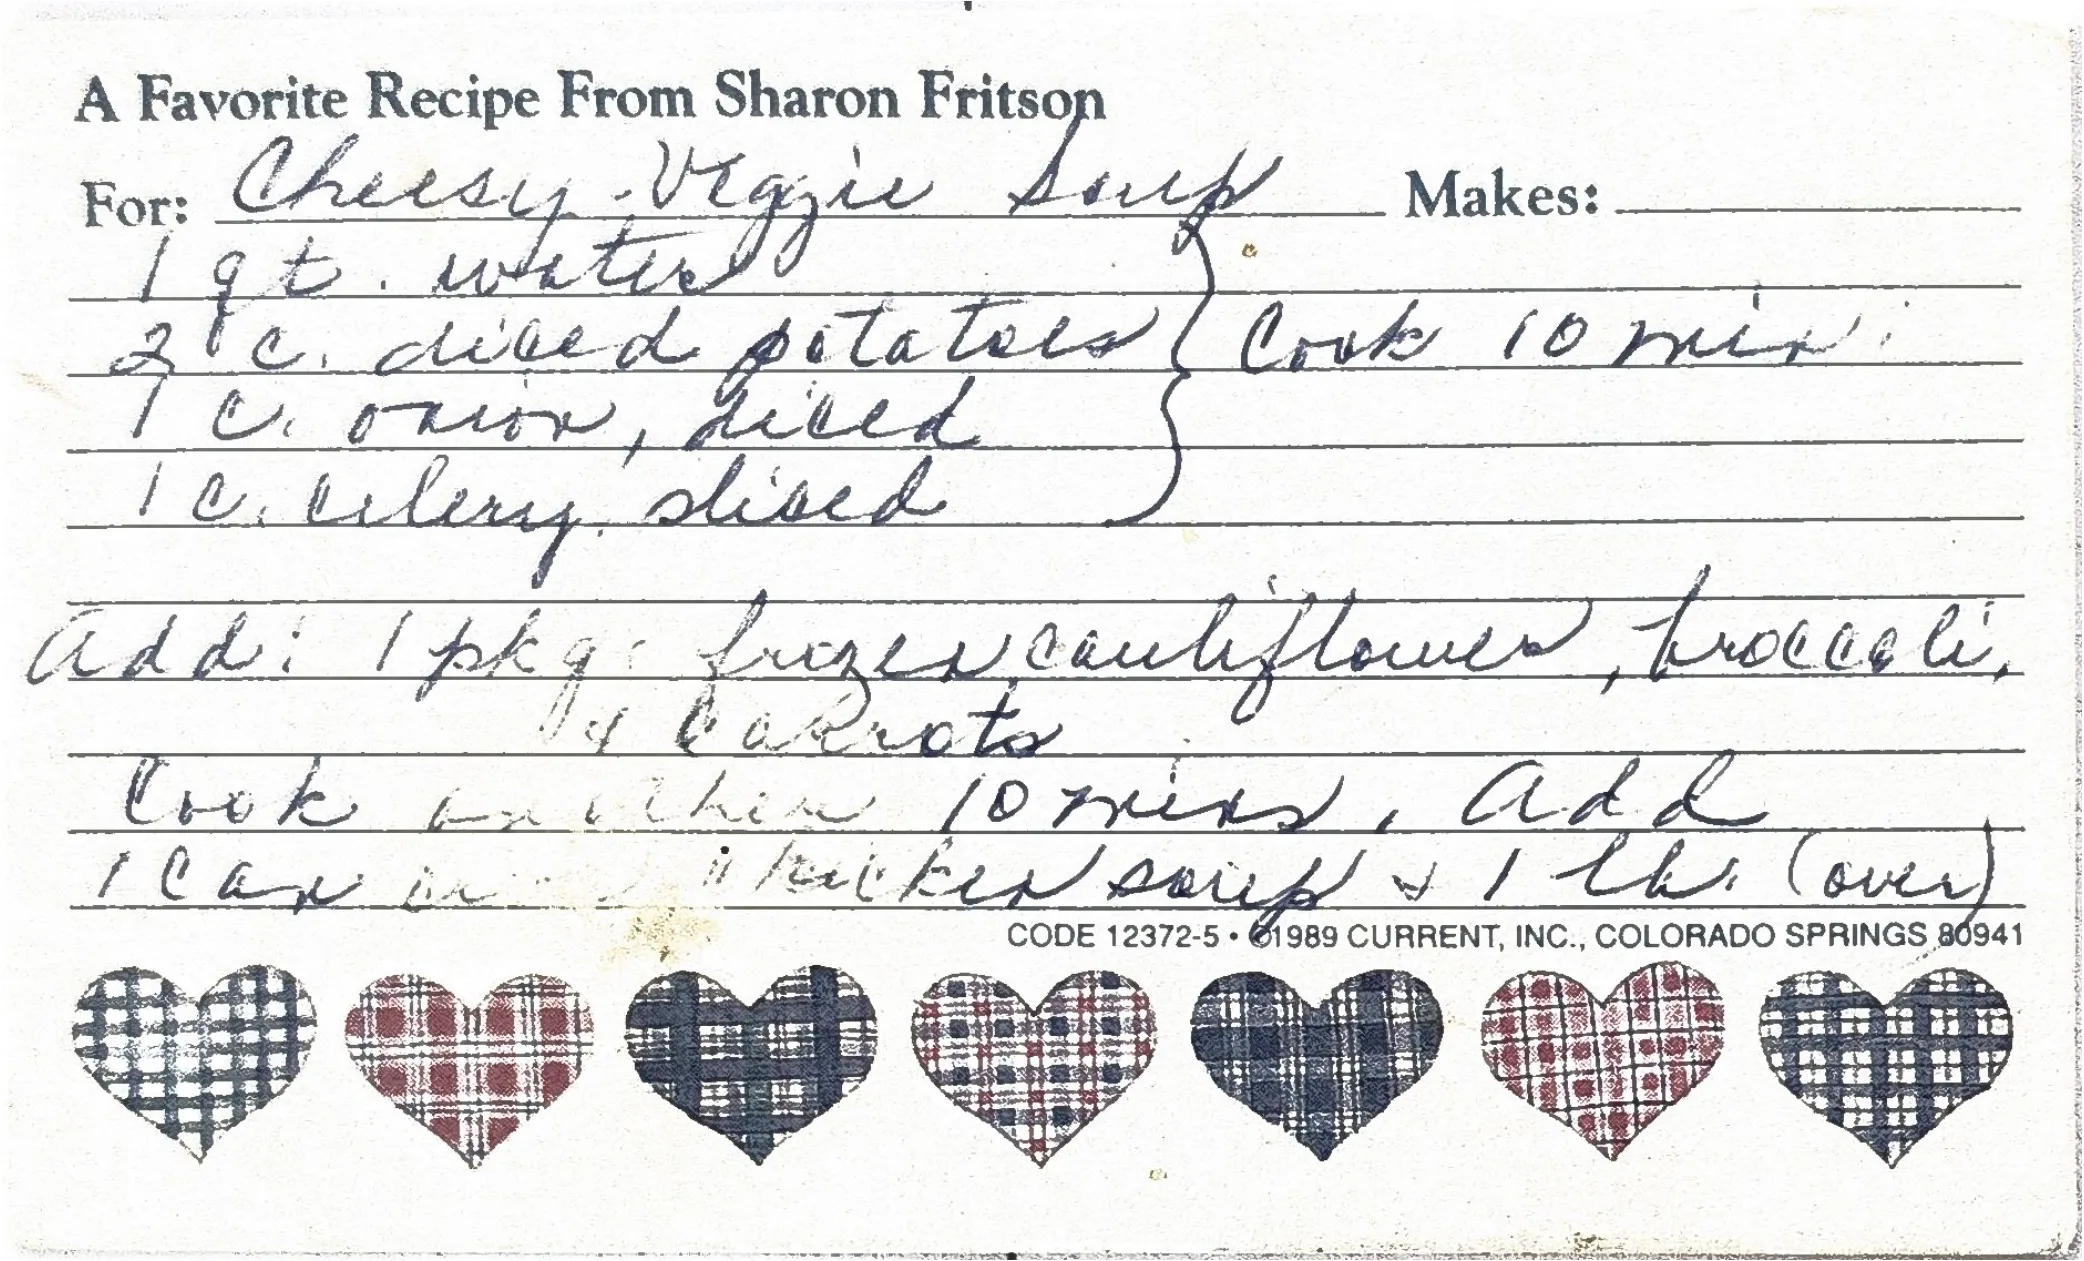 A Favorite Recipe From Sharon Fritson
For: Cheesy Veggie Soup Makes:
1 qt. water
2 c. diced potatoes } Cook 10 min.
1 c. onion, diced
1 c. celery, sliced
Add: 1 pkg. frozen cauliflower, broccoli,
& carrots
Cook another 10 mins. Add
1 can chicken soup & 1 lb. (over)
CODE 12372-5 • ©1989 CURRENT, INC., COLORADO SPRINGS 80941